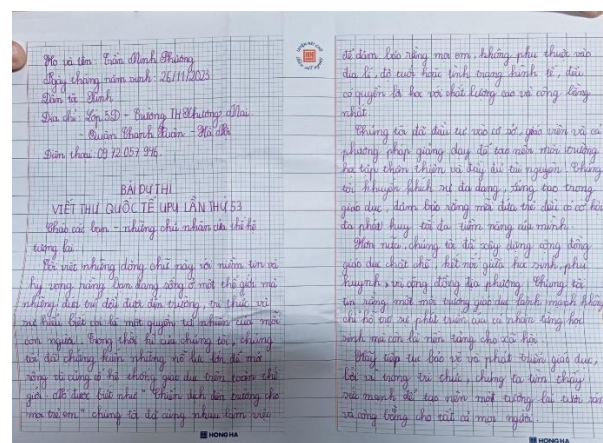 Họ và tên: Trần Minh Phương
Ngày tháng năm sinh: 26/11/2023
Dân tộ: Kinh
Địa chỉ: Lớp 5D - Trường TH Khương Mai
- Quận Thanh Xuân - Hà Nội
Điện thoại: 0972.057.946
BÀI DỰ THI
VIẾT THƯ QUỐC TẾ UPU LẦN THỨ 53
Chào các bạn - những chủ nhân của thế hệ
tương lai
Tôi viết những dòng chữ này với niềm tin và
hy vọng rằng bạn đang sống ở một thế giới mà
những đứa trẻ đều được đến trường, tri thức và
sự hiểu biết là một quyền tự nhiên của mỗi
con người. Trong thời kì của chúng tôi, chúng
tôi đã chứng kiến những nỗ lực lớn để mở
rộng và củng cố hệ thống giáo dục trên toàn thế
giới, được biết như "Chiến dịch đến trường cho
mọi trẻ em" chúng tôi đã cùng nhau làm việc
để đảm bảo rằng mọi em, không phụ thuộc vào
địa lí, độ tuổi hoặc tình trạng kinh tế, đều
có quyền lợi học với chất lượng cao và công bằng
nhất.
Chúng tôi đã đầu tư vào cơ sở, giáo viên và cả
phương pháp giảng dạy để tạo nên môi trường
học tập thân thiện và đầy đủ tài nguyên. Chúng
tôi khuyến khích sự đa dạng, sáng tạo trong
giáo dục, đảm bảo rằng mỗi đứa trẻ đều có cơ hội
để phát huy tối đa tiềm năng của mình.
Hơn nữa, chúng tôi đã xây dựng cộng đồng
giáo dục chặt chẽ, kết nối giữa học sinh, phụ
huynh, và cộng đồng địa phương. Chúng tôi
tin rằng một môi trường giáo dục lành mạnh không
chỉ hỗ trợ sự phát triển của cá nhân từng học
sinh mà còn là nền tảng cho xã hội.
Hãy tiếp tục bảo vệ và phát triển giáo dục,
bởi vì trong tri thức, chúng ta tìm thấy
sức mạnh để tạo nên một tương lai tươi sáng
và công bằng cho tất cả mọi người.
HONG HA
HONG HA